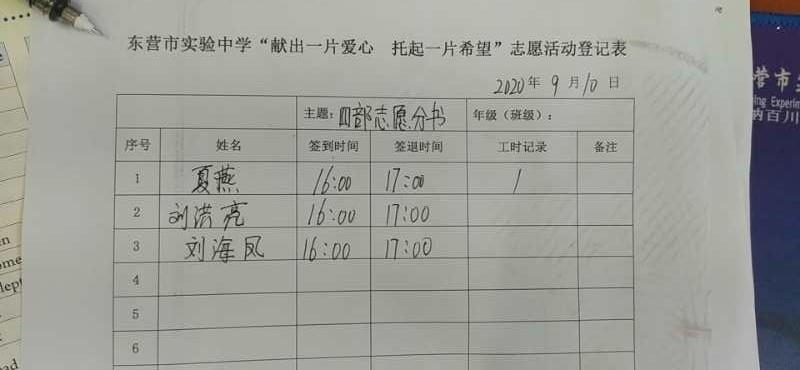 东营市实验中学“献出一片爱心 托起一片希望”志愿活动登记表
2020年 9 月 10 日
主题：四部志愿分书 年级（班级）：
序号 姓名 签到时间 签退时间 工时记录 备注
1 夏燕 16:00 17:00 1
2 刘洪亮 16:00 17:00
3 刘海凤 16:00 17:00
4
5
6
营市实
ing Experim
纳百川